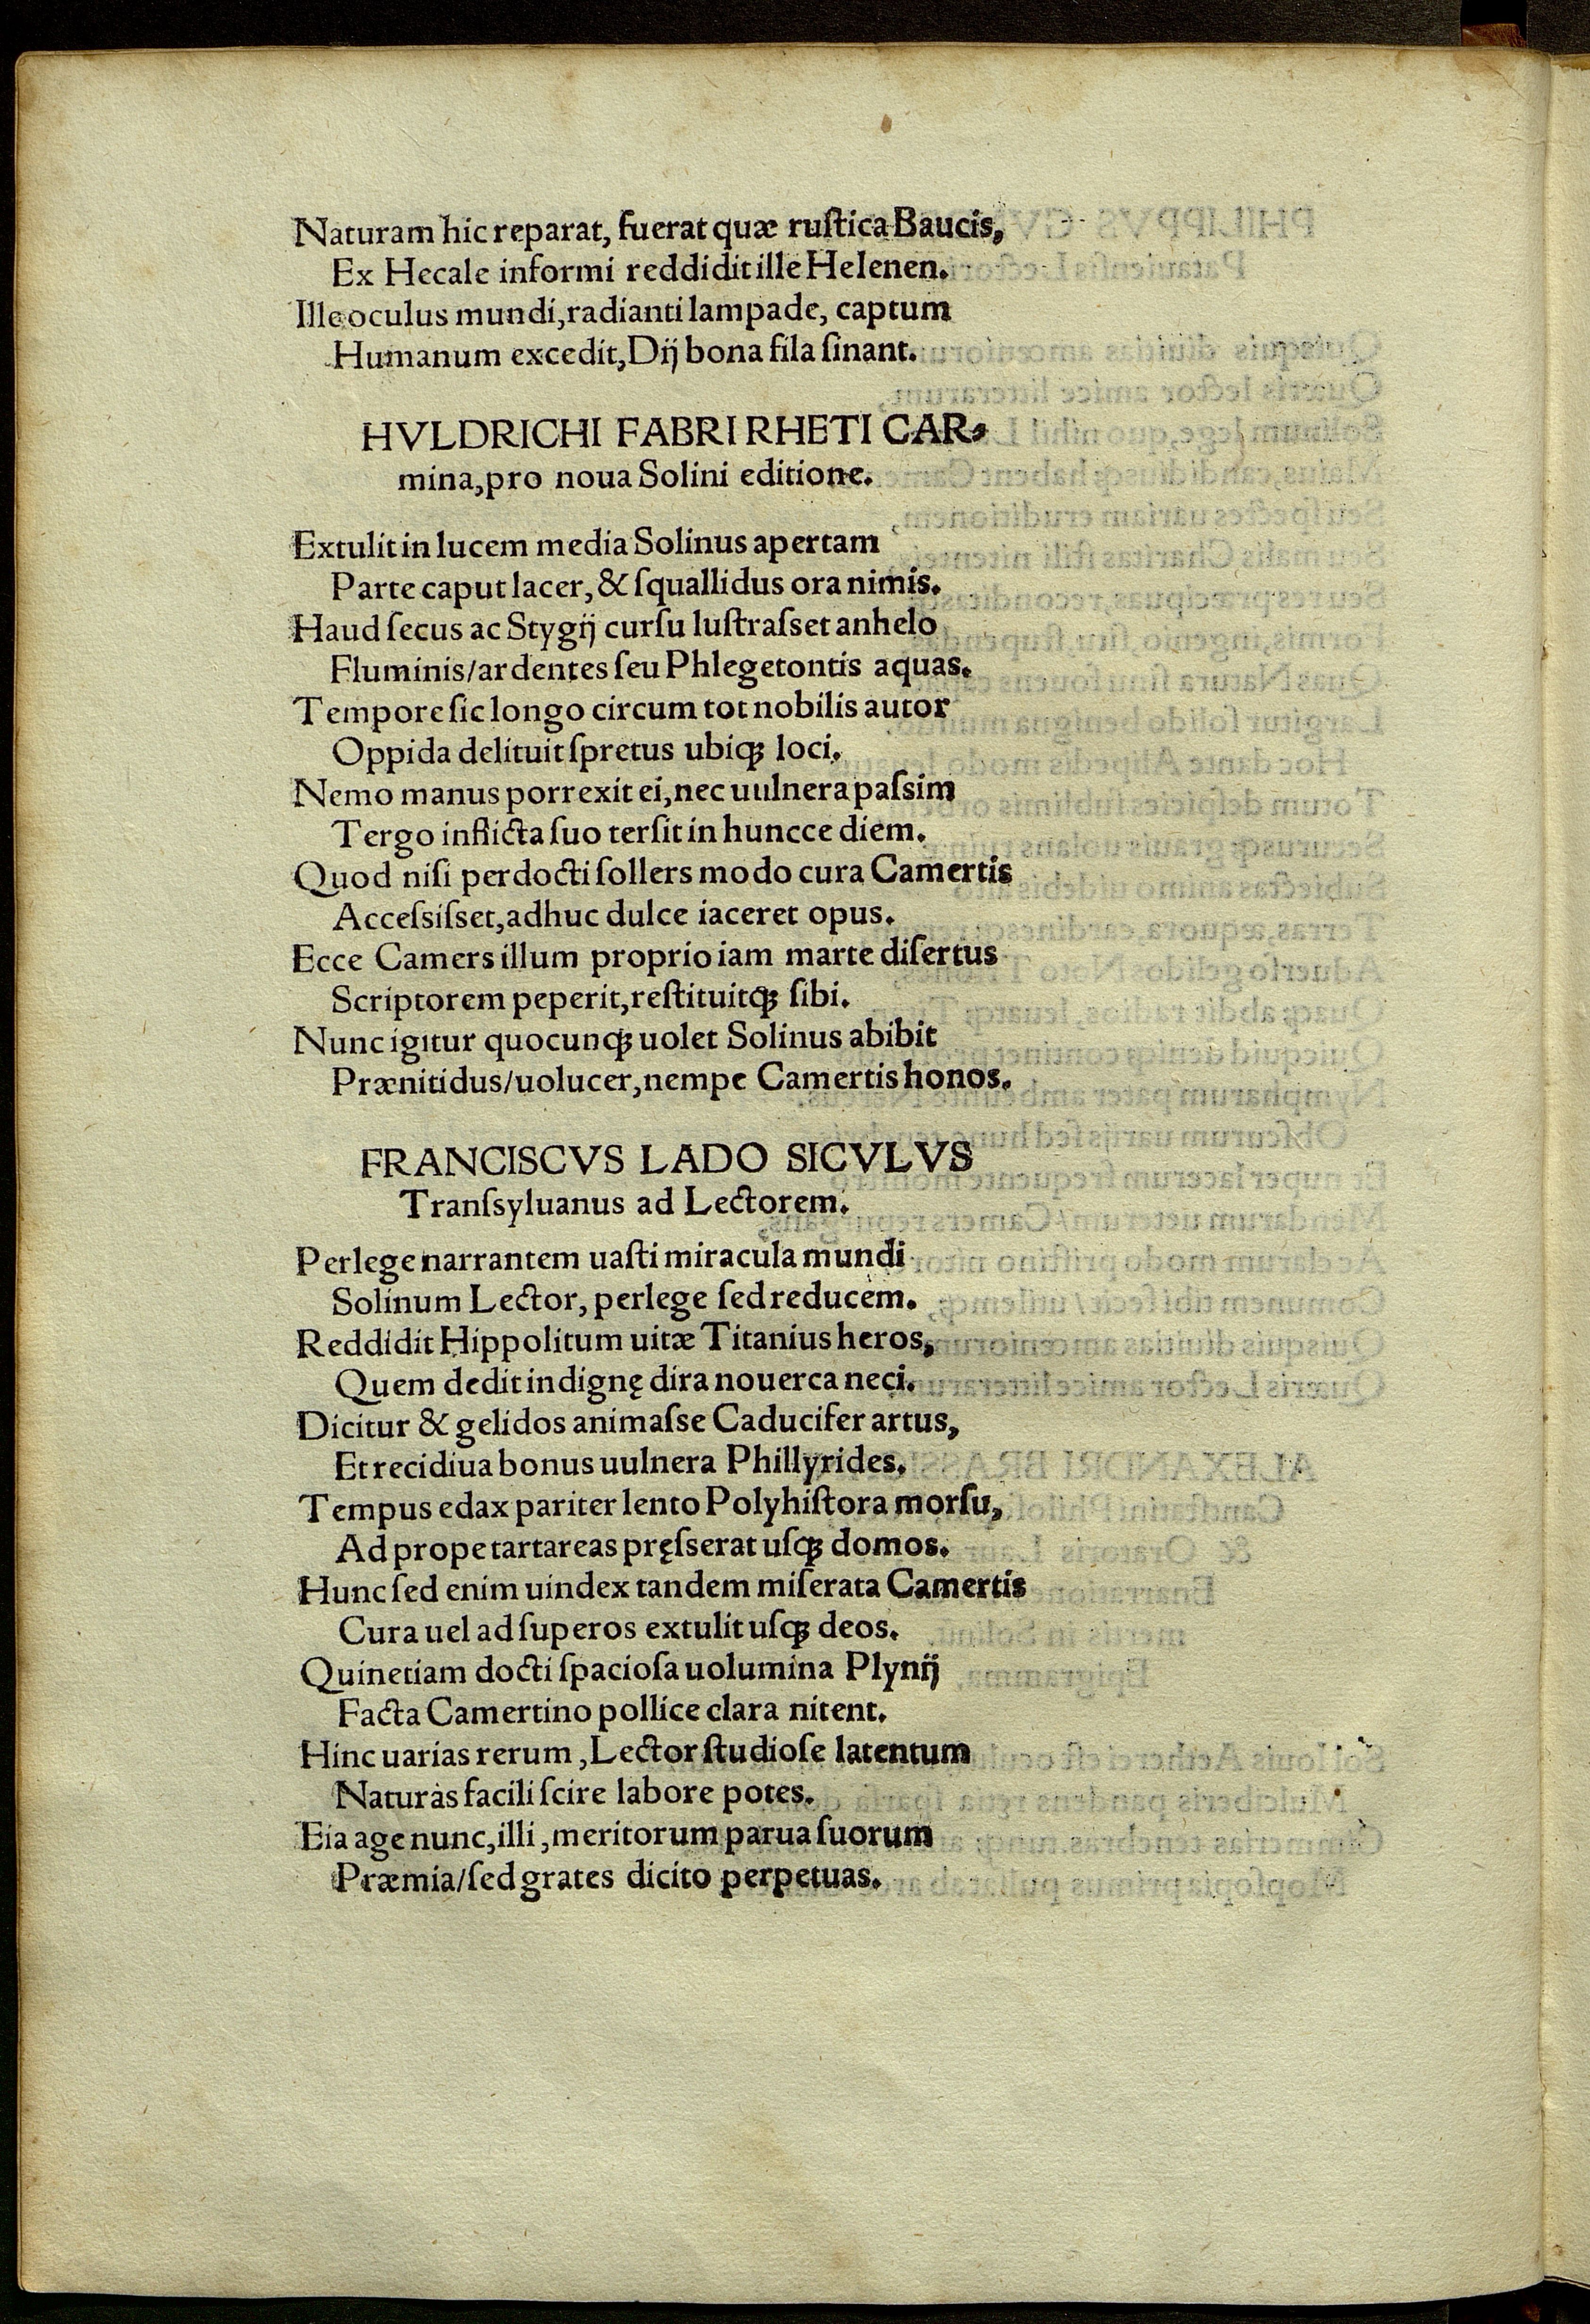 Naturam hic reparat, fuerat quæ ruſtica Baucis,
Ex Hecale informi reddidit ille Helenen.
Ille oculus mundi, radianti lampade, captum
Humanum excedit, Dij bona fila ſinant.
HVLDRICHI FABRI RHETI CAR-
mina, pro noua Solini editione.
Extulit in lucem media Solinus apertam
Parte caput lacer, & ſquallidus ora nimis.
Haud ſecus ac Stygij curſu luſtraſset anhelo
Fluminis/ardentes ſeu Phlegetontis aquas.
Tempore ſic longo circum tot nobilis autor
Oppida delituit ſpretus ubiqꝫ loci.
Nemo manus porrexit ei, nec uulnera paſsim
Tergo inflicta ſuo terſit in huncce diem.
Quod niſi perdocti ſollers modo cura Camertis
Acceſsiſset, adhuc dulce iaceret opus.
Ecce Camers illum proprio iam marte diſertus
Scriptorem peperit, reſtituitqꝫ ſibi.
Nunc igitur quocunqꝫ uolet Solinus abibit
Prænitidus/uolucer, nempe Camertis honos.
FRANCISCVS LADO SICVLVS
Tranſsyluanus ad Lectorem.
Perlege narrantem uaſti miracula mundi
Solinum Lector, perlege ſed reducem.
Reddidit Hippolitum uitæ Titanius heros,
Quem dedit indignę dira nouerca neci.
Dicitur & gelidos animaſse Caducifer artus,
Et recidiua bonus uulnera Phillyrides.
Tempus edax pariter lento Polyhiſtora morſu,
Ad prope tartareas pręſserat uſqꝫ domos.
Hunc ſed enim uindex tandem miſerata Camertis
Cura uel ad ſuperos extulit uſqꝫ deos.
Quinetiam docti ſpacioſa uolumina Plynij
Facta Camertino pollice clara nitent.
Hinc uarias rerum, Lector ſtudioſe latentum
Naturas facili ſcire labore potes.
Eia age nunc, illi, meritorum parua ſuorum
Præmia/ſed grates dicito perpetuas.